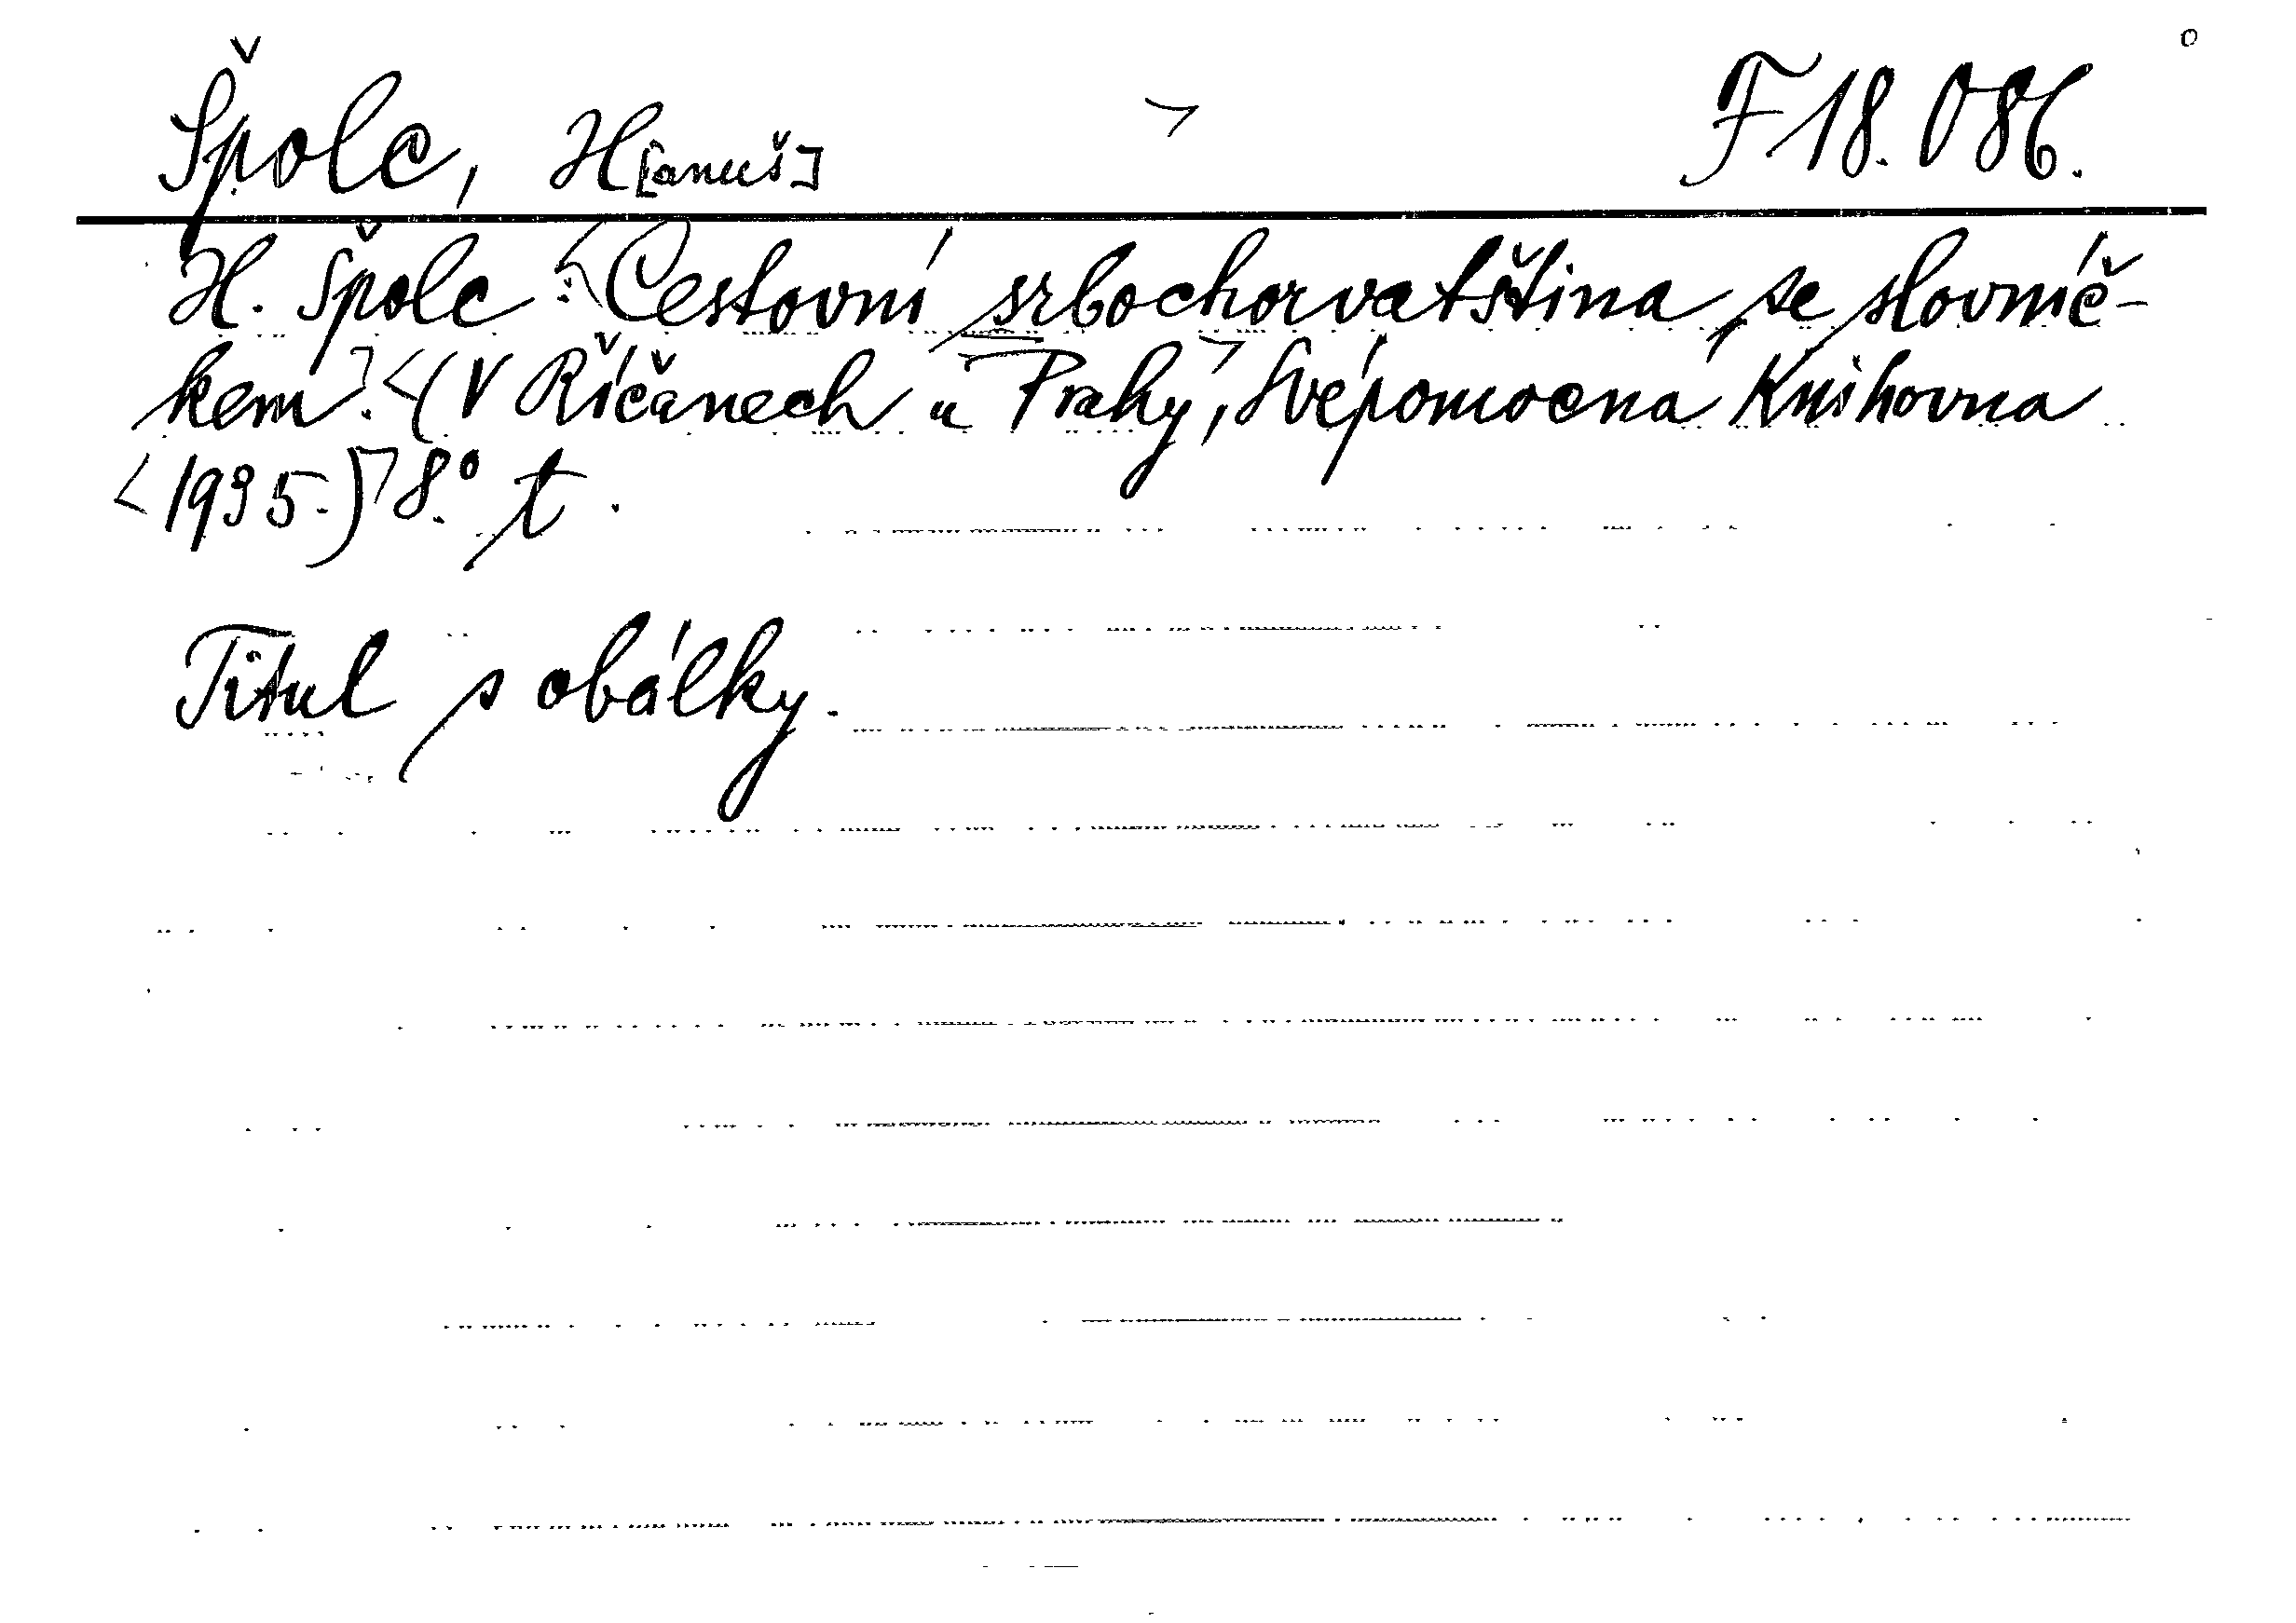 Špolc, H[anuš] F 18.086.
H. Špolc: Cestovní srbochorvatština se slovníč-
kem. (V Říčanech u Prahy, Svépomocná Knihovna
1935.) 8°. t.
Titul s obálky.